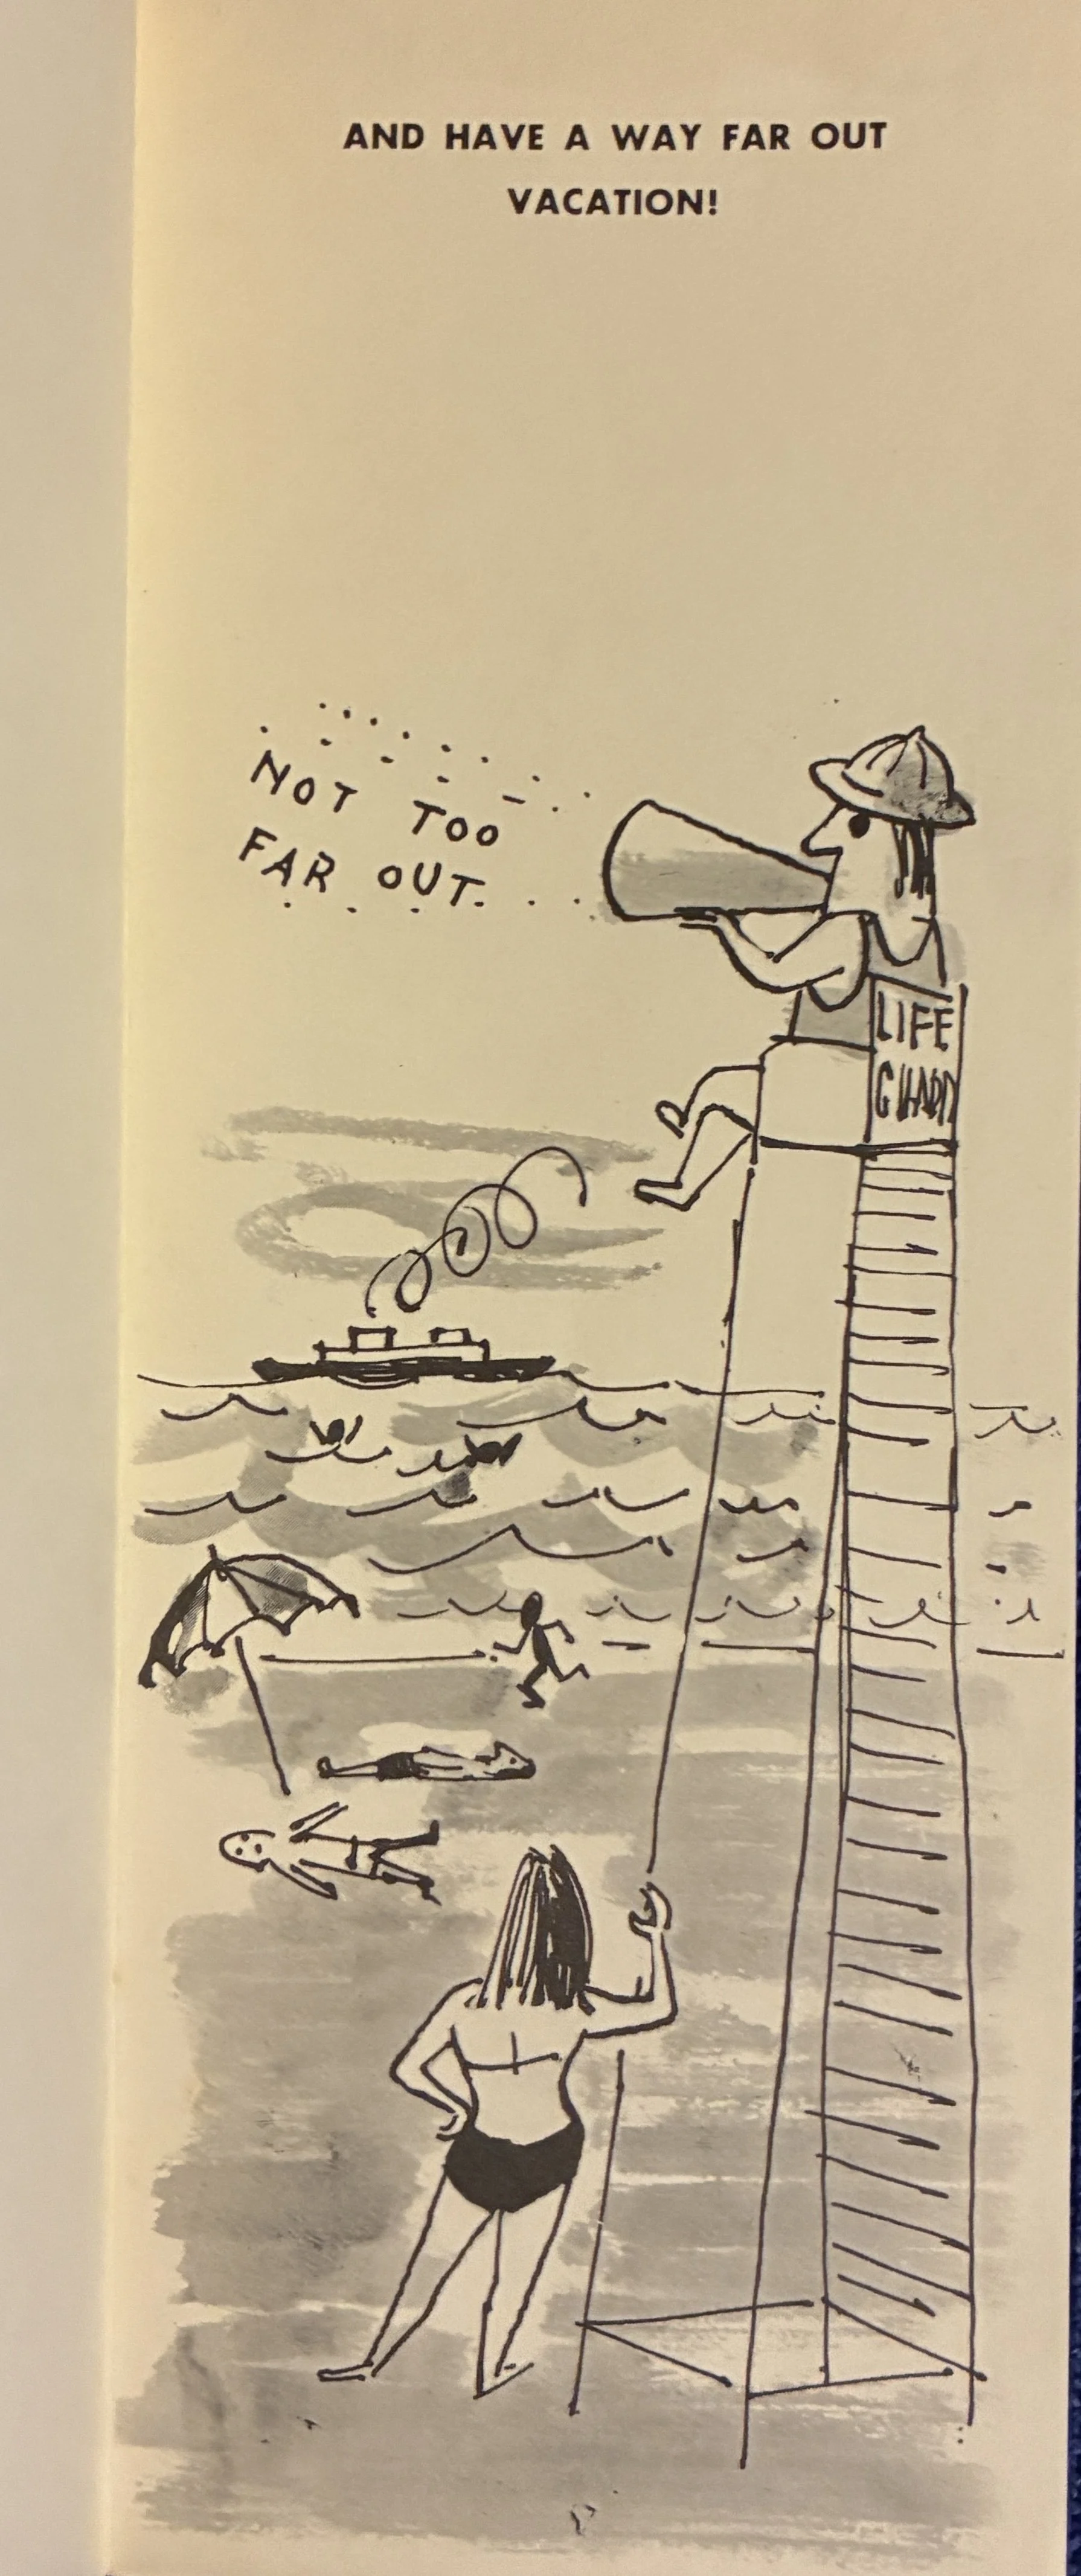 AND HAVE A WAY FAR OUT
VACATION!
NOT TOO
FAR OUT.
LIFE
GUARD